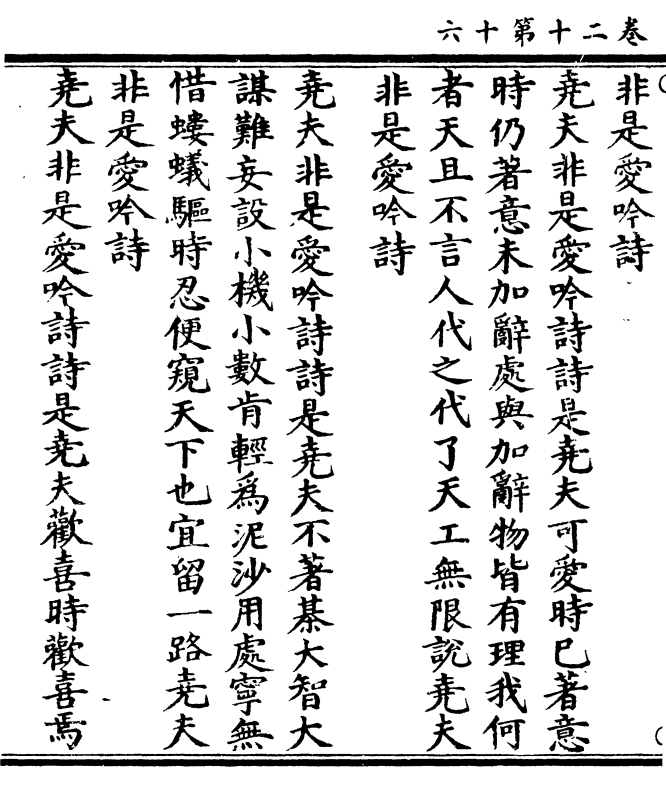 卷二十第十六
非是愛吟詩
堯夫非是愛吟詩詩是堯夫可愛時已著意
時仍著意未加辭處與加辭物皆有理我何
者天且不言人代之代了天工無限說堯夫
非是愛吟詩
堯夫非是愛吟詩詩是堯夫不著棊大智大
謀難妄設小機小數肯輕爲泥沙用處寧無
惜螻蟻驅時忍便窺天下也宜留一路堯夫
非是愛吟詩
堯夫非是愛吟詩詩是堯夫歡喜時歡喜焉